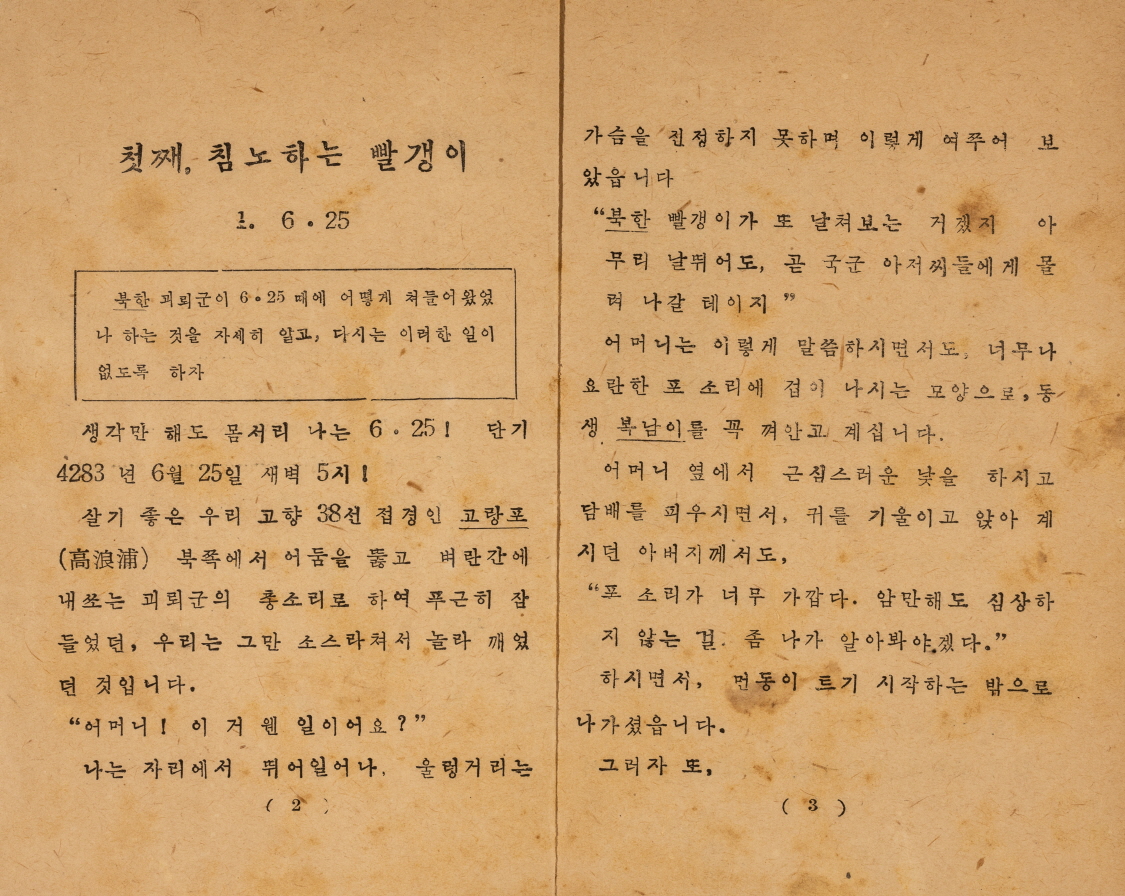 첫째, 침노하는 빨갱이
1. 6·25
북한 괴뢰군이 6·25 때에 어떻게 쳐들어왔었
나 하는 것을 자세히 알고, 다시는 이러한 일이
없도록 하자
생각만 해도 몸서리 나는 6·25! 단기
4283년 6월 25일 새벽 5시!
살기 좋은 우리 고향 38선 접경인 고랑포
(高浪浦) 북쪽에서 어둠을 뚫고 벼란간에
내쏘는 괴뢰군의 총소리로 하여 푸근히 잠
들었던, 우리는 그만 소스라쳐서 놀라 깨었
던 것입니다.
“어머니! 이 거 웬 일이어요?”
나는 자리에서 뛰어일어나, 울렁거리는
( 2 )
가슴을 진정하지 못하며 이렇게 여쭈어 보
았읍니다
“북한 빨갱이가 또 날쳐보는 거겠지 아
무리 날뛰어도, 곧 국군 아저씨들에게 몰
려 나갈 테이지”
어머니는 이렇게 말씀하시면서도, 너무나
요란한 포 소리에 겁이 나시는 모양으로, 동
생 복남이를 꼭 껴안고 계십니다.
어머니 옆에서 근심스러운 낯을 하시고
담배를 피우시면서, 귀를 기울이고 앉아 계
시던 아버지께서도,
“포 소리가 너무 가깝다. 암만해도 심상하
지 않는 걸. 좀 나가 알아봐야겠다.”
하시면서, 먼동이 트기 시작하는 밖으로
나가셨읍니다.
그러자 또,
( 3 )